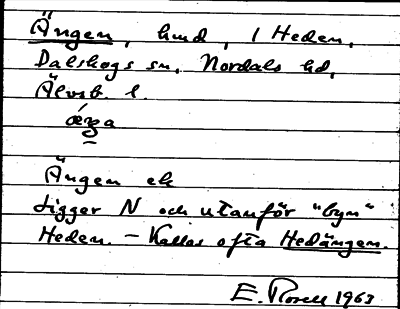 Ängen, hmd, 1 Heden,
Dalskogs sn, Nordals hd,
Älvsb. l.
Ängen ek
Ligger N och utanför "byn"
Heden. – Kallas ofta Hedängen.
E. Rosell 1963